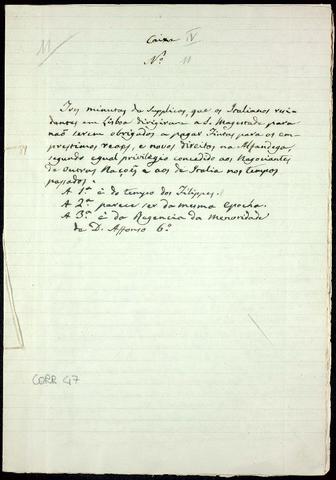 11
Caixa IV
Nº 11
Tres minutas de Supplicas, que os Italianos resi-
dentes em Lisboa dirigiram a S. Magestade para
não serem obrigados a pagar Fintas para os em-
prestimos reaes, e novos direitos na Alfandega,
segundo egual privilegio concedido aos Negociantes
de outras Nações e aos de Italia nos tempos
passados.
A 1ª é do tempo dos Filippes.
A 2ª parece ser da mesma epocha.
A 3ª é da Regencia da Menoridade
de D. Affonso 6º
CORR 47